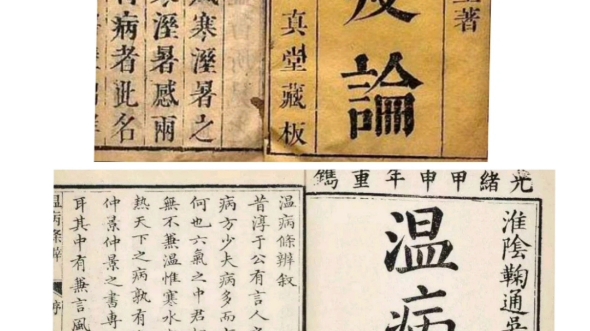 著
論
真堂藏板
寒溼暑之
寒溼暑感雨
病者此名
光緒甲申年重鐫
淮陰鞠通吳
温病
温病條辨敘
昔淳于公有言人之
病方少夫病多而
何也六氣之中君
無不兼温惟寒水
熱天下之病孰有
仲景仲景之書專
耳其中有兼言風
温病條辨 序